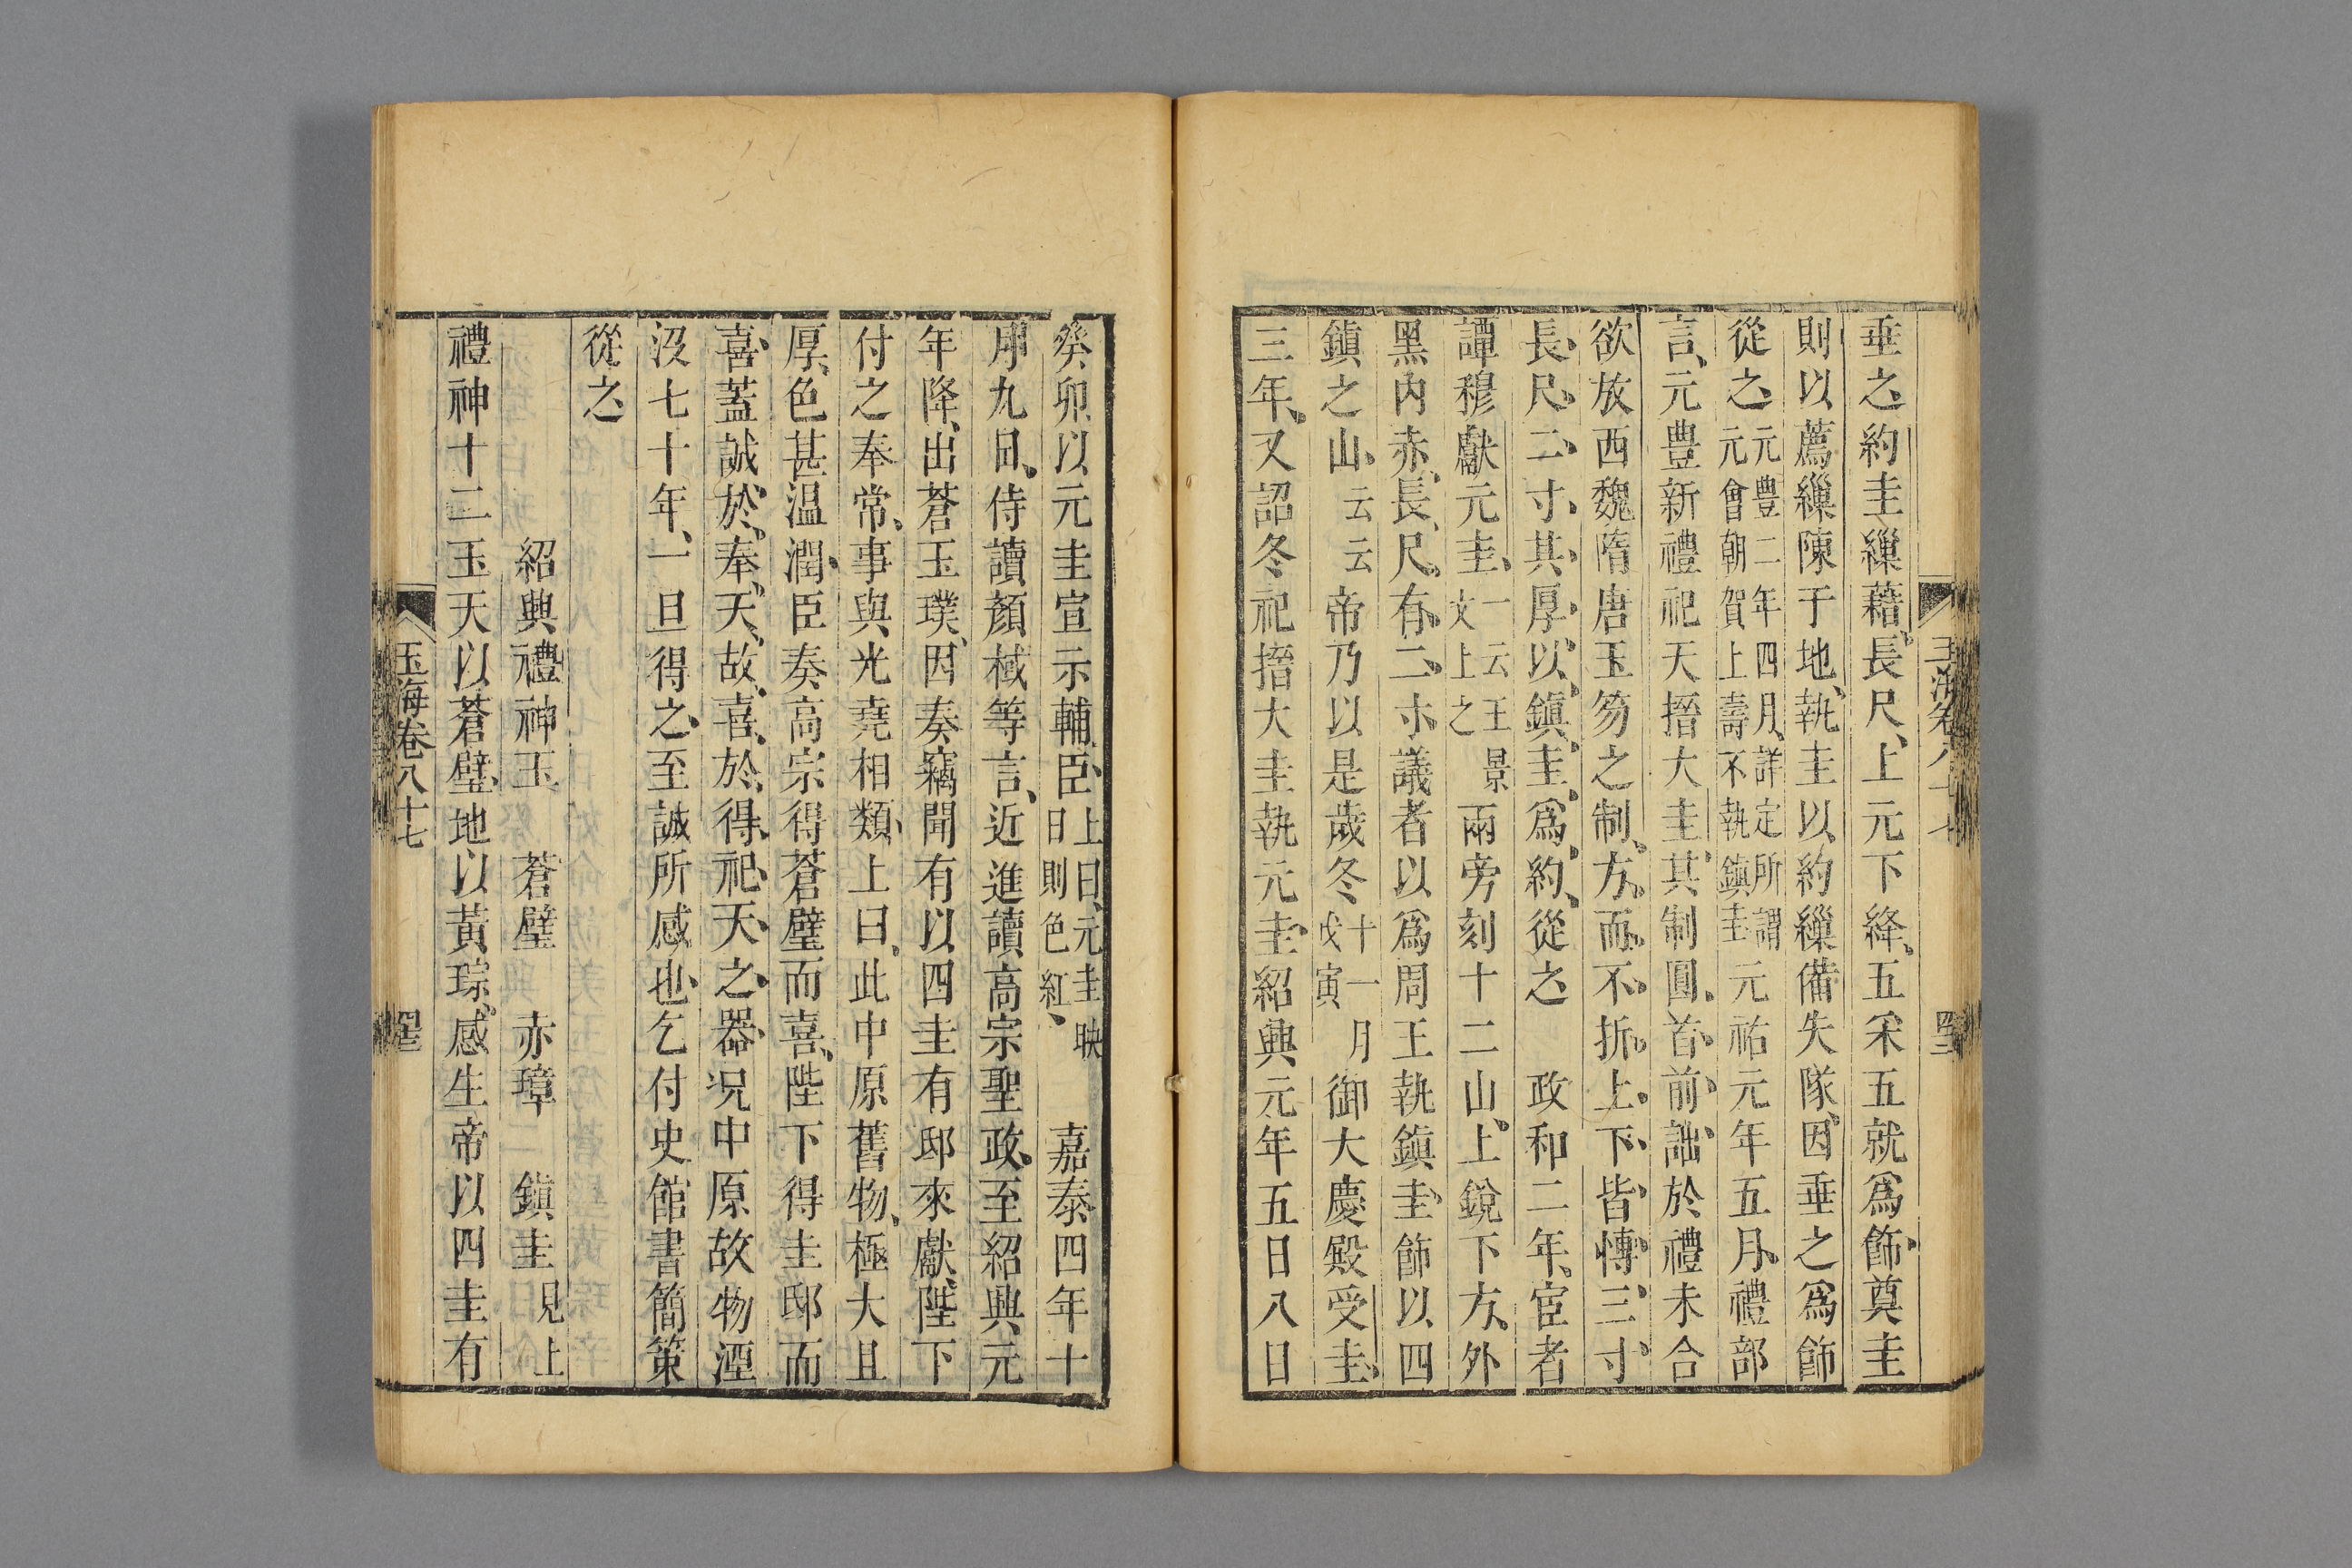 垂之約圭繅藉長尺上元下絳五采五就爲飾奠圭
則以薦繅陳于地執圭以約繅備失隊因垂之爲飾
從之元豐二年四月詳定所謂元會朝賀上壽不執鎮圭元祐元年五月禮部
言元豊新禮祀天搢大圭其制圓首前詘於禮未合
欲放西魏隋唐玉笏之制方而不折上下皆愽三寸
長尺二寸其厚以鎮圭爲約從之 政和二年宦者
譚稹獻元圭一云王景文上之兩旁刻十二山上銳下方外
黑内赤長尺有二寸議者以爲周王執鎮圭飾以四
鎮之山云云帝乃以是歲冬十一月戊寅御大慶殿受圭
三年又詔冬祀搢大圭執元圭紹興元年五日八日
癸卯以元圭宣示輔臣上曰元圭映日則色紅 嘉泰四年十
月九日侍讀顏棫等言近進讀高宗聖政至紹興元
年降出蒼玉璞因奏竊聞有以四圭有邸來獻陛下
付之奉常事與光堯相類上曰此中原舊物極大且
厚色甚温潤臣奏高宗得蒼璧而喜陛下得圭邸而
喜蓋誠於奉天故喜於得祀天之器况中原故物湮
沒七十年一旦得之至誠所感也乞付史館書簡策
從之
紹興禮神玉 蒼璧 赤璋 鎮圭見上
禮神十二玉天以蒼璧地以黃琮感生帝以四圭有
玉海卷八十七